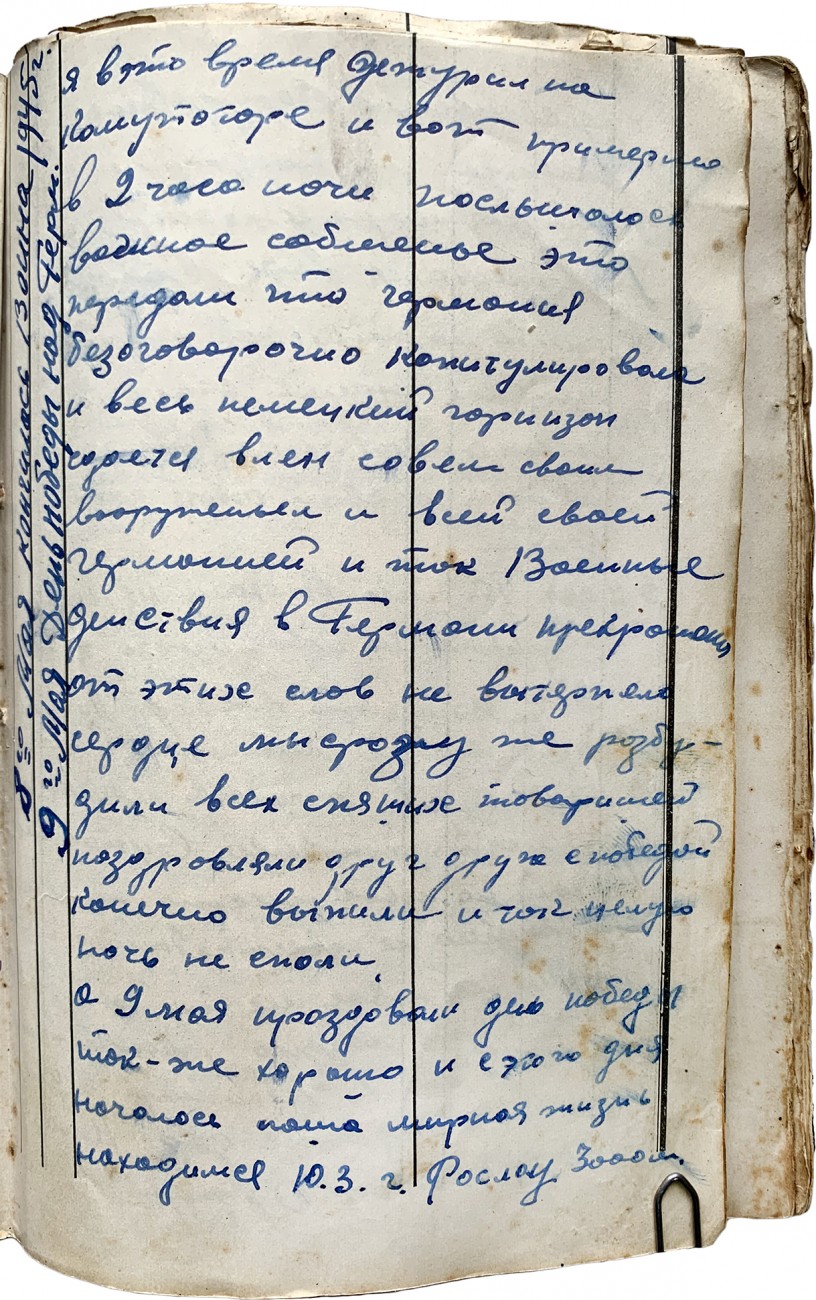 я в это время дежурил на
комутоторе и вот примерно
в 2 часа ночи послышалось
важное собщенье это
передали что германия
безоговорочно копитулировала
и весь немецкий горнизон
сдается влен совсем своим
вооруженьем и всей своей
германией и так Военные
действия в Германи прекрощены
от этих слов не вытержело
сердце мы сразу же розбу-
дили всех спящих товарищей
поздровляли друг друга с победой
конечно выпили и так целую
ночь не споли.
а 9 мая проздовали день победы
так-же хорошо и с этого дня
началось наша мирная жизнь
находимся 10.3. г. Рослау
8го Мая кончилась Воина 1945г.
9го Мая День победы над Герм.